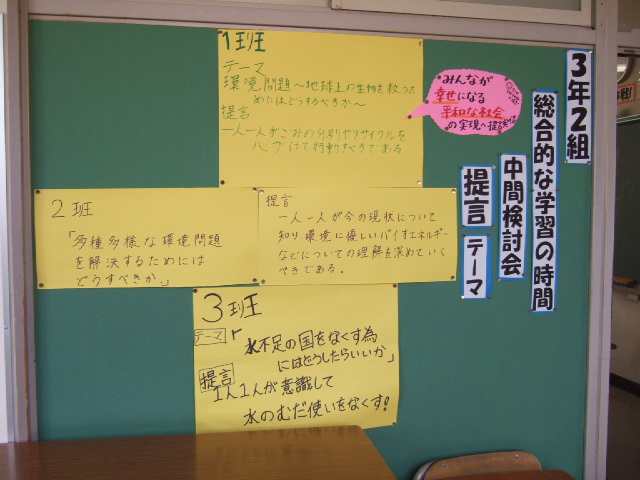 3年2組
総合的な学習の時間
中間検討会
提言
テーマ
みんなが
幸せになる
平和な社会
の実現へ提
1班
テーマ
環境問題～地球上の生物を救うた
めにはどうするべきか～
提言
一人一人がごみの分別やリサイクルを
心がけて行動すべきである
2班
「多種多様な環境問題
を解決するためには
どうすべきか」
提言
一人一人が今の現状について
知り、環境に優しいバイオエネルギー
などについての理解を深めていく
べきである.
3班
テーマ
「水不足の国をなくす為
にはどうしたらいいか」
提言
1人1人が意識して
水のむだ使いをなくす!